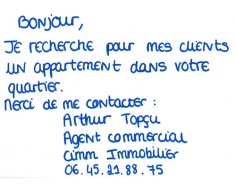 BONJOUR,
JE recherche pour mes clients
UN appartement dans votre
quartier.
Merci de me contacter :
Arthur Topçu
Agent commercial
Cimm Immobilier
06.45.21.88.75